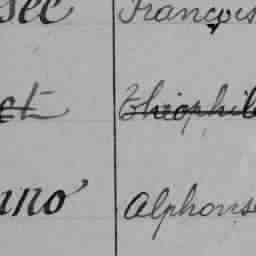 sec François
ct Théophil
uno Alphons